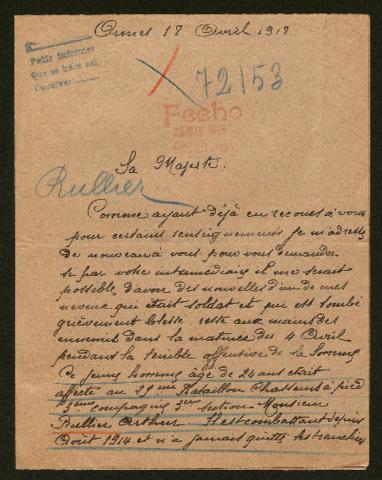 Ormes 17 Avril 1918.
Pedir informes
Que se hace así
Devolver
72153
Fecho
25 MAY 1918
Sa Majesté.
Rullier
Comme ayant déjà eu recours à vous
pour certains renseignements, je m'adresse
de nouveau à vous pour vous demander
si par votre intermédiaire il me serait
possible d'avoir des nouvelles d'un de mes
neveux qui était soldat et qui est tombé
grièvement blessé resté aux mains des
ennemis dans la matinée du 4 Avril
pendant la terrible offensive de la Somme
Ce jeune homme âgé de 24 ans était
affecté au 29me Bataillon Chasseurs à pied
3eme compagnie 3me section Monsieur
Rullier Arthur. Il est combattant depuis
Août 1914 et n'a jamais quitté les tranchées